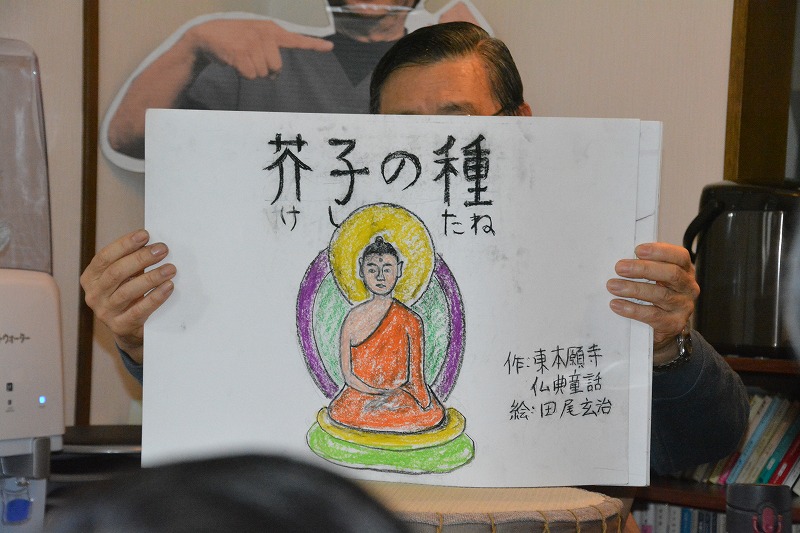 芥子の種
けし たね
作:東本願寺
仏典童話
絵:田尾玄治
ウォーター